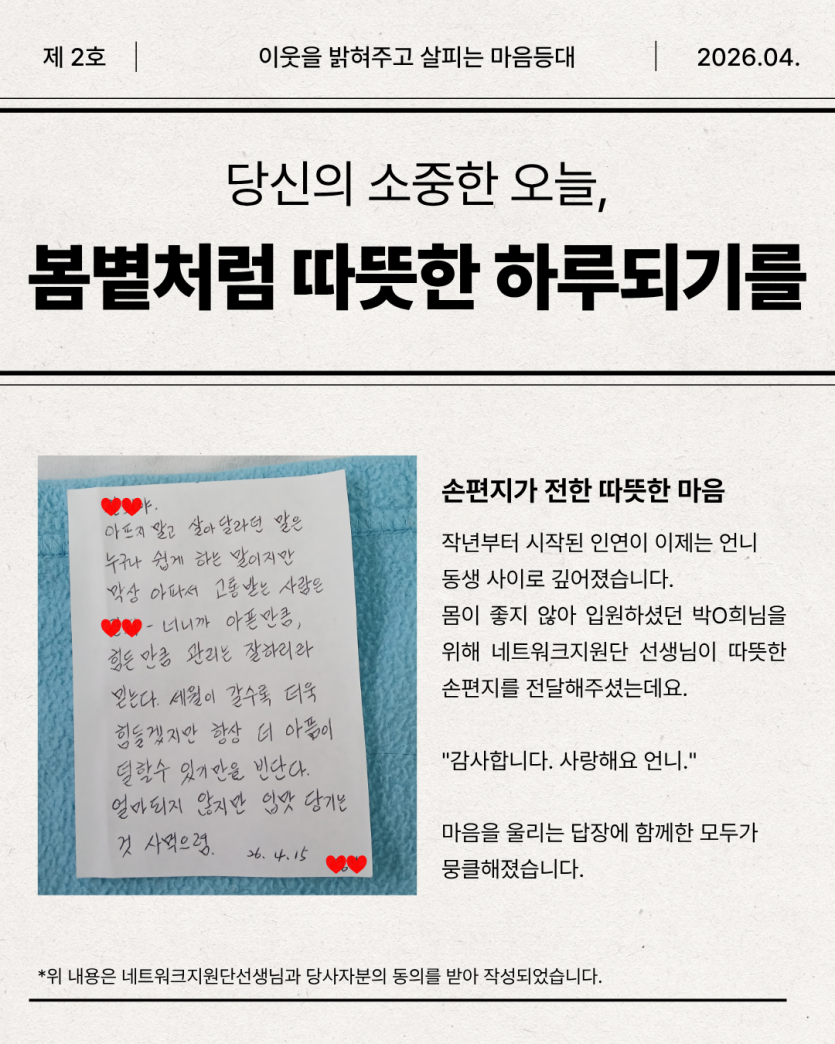 제 2호
이웃을 밝혀주고 살피는 마음등대
2026.04.
당신의 소중한 오늘,
봄볕처럼 따뜻한 하루되기를
야.
아프지 말고 살아달라던 말은
누구나 쉽게 하는 말이지만
막상 아파서 고통받는 사람은
- 너니까 아픈만큼,
힘든만큼 관리는 잘하리라
믿는다. 세월이 갈수록 더욱
힘들겠지만 항상 더 아픔이
덜할수 있기만을 빈단다.
얼마되지 않지만 입맛 당기는
것 사먹으렴.
26. 4. 15
손편지가 전한 따뜻한 마음
작년부터 시작된 인연이 이제는 언니
동생 사이로 깊어졌습니다.
몸이 좋지 않아 입원하셨던 박O희님을
위해 네트워크지원단 선생님이 따뜻한
손편지를 전달해주셨는데요.
"감사합니다. 사랑해요 언니."
마음을 울리는 답장에 함께한 모두가
뭉클해졌습니다.
*위 내용은 네트워크지원단선생님과 당사자분의 동의를 받아 작성되었습니다.